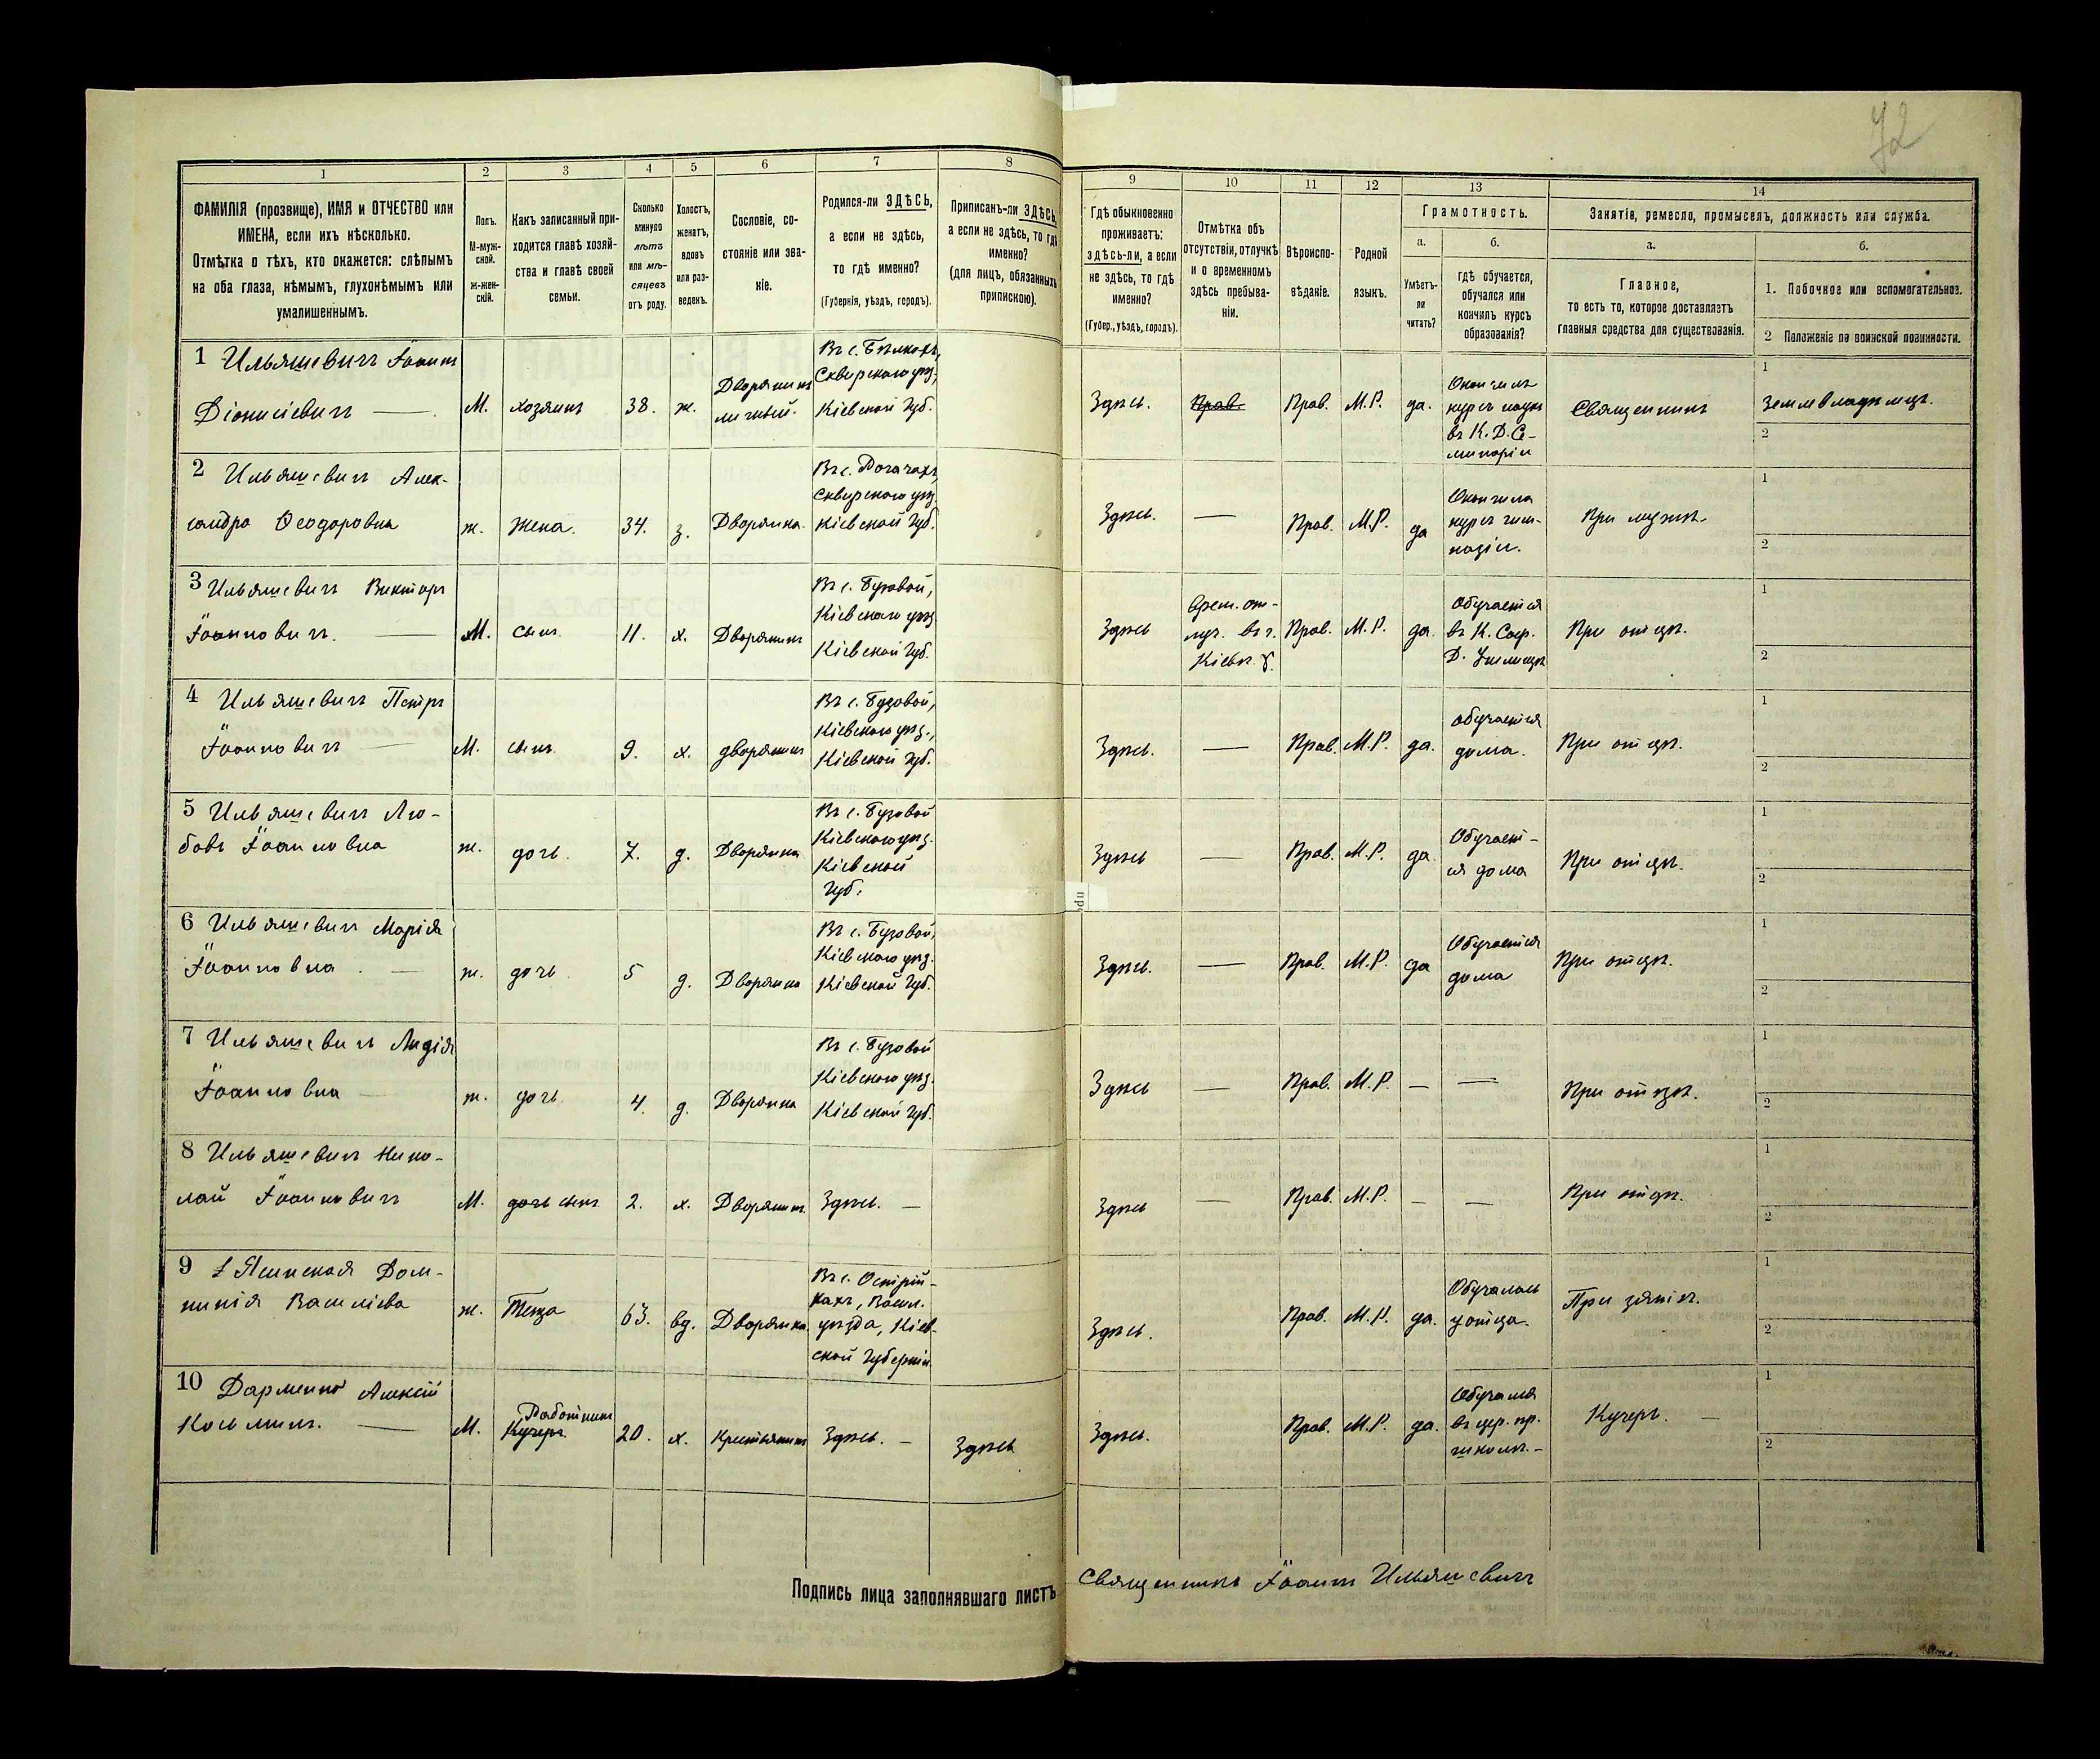 72
1
2
3
4
5
6
7
8
9
10
11
12
13
14
ФАМИЛІЯ (прозвище), ИМЯ и ОТЧЕСТВО или
ИМЕНА, если ихъ нѣсколько.
Отмѣтка о тѣхъ, кто окажется: слѣпымъ
на оба глаза, нѣмымъ, глухонѣмымъ или
умалишеннымъ.
Полъ.
М-муж-
ской.
Ж-жен-
скій.
Какъ записанный при-
ходится главѣ хозяй-
ства и главѣ своей
семьи.
Сколько
минуло
лѣтъ
или мѣ-
сяцевъ
отъ роду.
Холостъ,
женатъ,
вдовъ
или раз-
веденъ.
Сословіе, со-
стояніе или зва-
ніе.
Родился-ли ЗДѢСЬ,
а если не здѣсь,
то гдѣ именно?
(Губернія, уѣздъ, городъ).
Приписанъ-ли ЗДѢСЬ,
а если не здѣсь, то гдѣ
именно?
(для лицъ, обязанныхъ
припискою).
Гдѣ обыкновенно
проживаетъ:
здѣсь-ли, а если
не здѣсь, то гдѣ
именно?
(Губер., уѣздъ, городъ).
Отмѣтка объ
отсутствіи, отлучкѣ
и о временномъ
здѣсь пребыва-
ніи.
Вѣроиспо-
вѣданіе.
Родной
языкъ.
Грамотность.
а.
Умѣетъ-
ли
читать?
б.
гдѣ обучается,
обучался или
кончилъ курсъ
образованія?
Занятіе, ремесло, промыселъ, должность или служба.
а.
Главное,
то есть то, которое доставляетъ
главныя средства для существованія.
б.
1. Побочное или вспомогательное.
2 Положеніе по воинской повинности.
1 Ильяшевичъ Іоаннъ
Діонисіевичъ —
М.
хозяинъ
38.
ж.
Дворянинъ
личный.
Въ с. Бѣлкахъ,
Сквирскаго уѣз.,
Кіевской Губ.
Здѣсь.
Прав.
Прав.
М.Р.
да.
Окончилъ
курсъ наукъ
въ К. Д. Се-
минаріи
Священникъ
1
Землевладѣлецъ.
2
2 Ильяшевичъ Алек-
сандра Ѳеодоровна
ж.
Жена.
34.
з.
Дворянка.
Въ с. Рогачахъ,
Сквирскаго уѣз.
Кіевской Губ.
Здѣсь.
—
Прав.
М.Р.
да
Окончила
курсъ гим-
назіи.
При мужѣ.
1
2
3 Ильяшевичъ Викторъ
Іоанновичъ. —
М.
сынъ.
11.
х.
Дворянинъ
Въ с. Бузовой,
Кіевскаго уѣз.
Кіевской Губ.
Здѣсь
Врем. от-
луч. въ г.
Кіевѣ.
Прав.
М.Р.
да.
Обучается
въ К. Соф.
Д. Училищѣ
При отцѣ.
1
2
4 Ильяшевичъ Петръ
Іоанновичъ —
М.
сынъ.
9.
х.
дворянинъ
Въ с. Бузовой,
Кіевскаго уѣз.,
Кіевской Губ.
Здѣсь.
—
Прав.
М.Р.
да.
Обучается
дома.
При отцѣ.
1
2
5 Ильяшевичъ Лю-
бовь Іоанновна
ж.
дочь.
7.
д.
Дворянка
Въ с. Бузовой
Кіевскаго уѣз.
Кіевской
Губ.
Здѣсь
—
Прав.
М.Р.
да
Обучает-
ся дома
При отцѣ.
1
2
6 Ильяшевичъ Марія
Іоанновна. —
ж.
дочь
5
д.
Дворянка
Въ с. Бузовой,
Кіевскаго уѣз.
Кіевской Губ.
Здѣсь.
—
Прав.
М.Р.
да
Обучается
дома
При отцѣ.
1
2
7 Ильяшевичъ Лидія
Іоанновна —
ж.
дочь
4.
д.
Дворянка
Въ с. Бузовой
Кіевскаго уѣз.
Кіевской Губ.
Здѣсь
—
Прав.
М.Р.
—
—
При отцѣ.
1
2
8 Ильяшевичъ Нико-
лай Іоанновичъ
М.
дочь сынъ
2.
х.
Дворянинъ.
Здѣсь. —
Здѣсь
—
Прав.
М.Р.
—
—
При отцѣ.
1
2
9 Ясинская Дом-
никія Василіева
ж.
Теща
63.
вд.
Дворянка.
Въ с. Острій-
кахъ, Васил.
уѣзда, Кіев-
ской Губерніи.
Здѣсь.
Прав.
М.Р.
да.
Обучалась
у отца.
При зятѣ.
1
2
10 Дарменко Алексій
Косьминъ. —
М.
Работникъ
Кучеръ
20.
х.
Крестьянинъ
Здѣсь. —
Здѣсь
Здѣсь.
Прав.
М.Р.
да.
Обучался
въ цер. пр.
школѣ. —
Кучеръ. —
1
2
Подпись лица заполнявшаго листъ
Священникъ Іоаннъ Ильяшевичъ